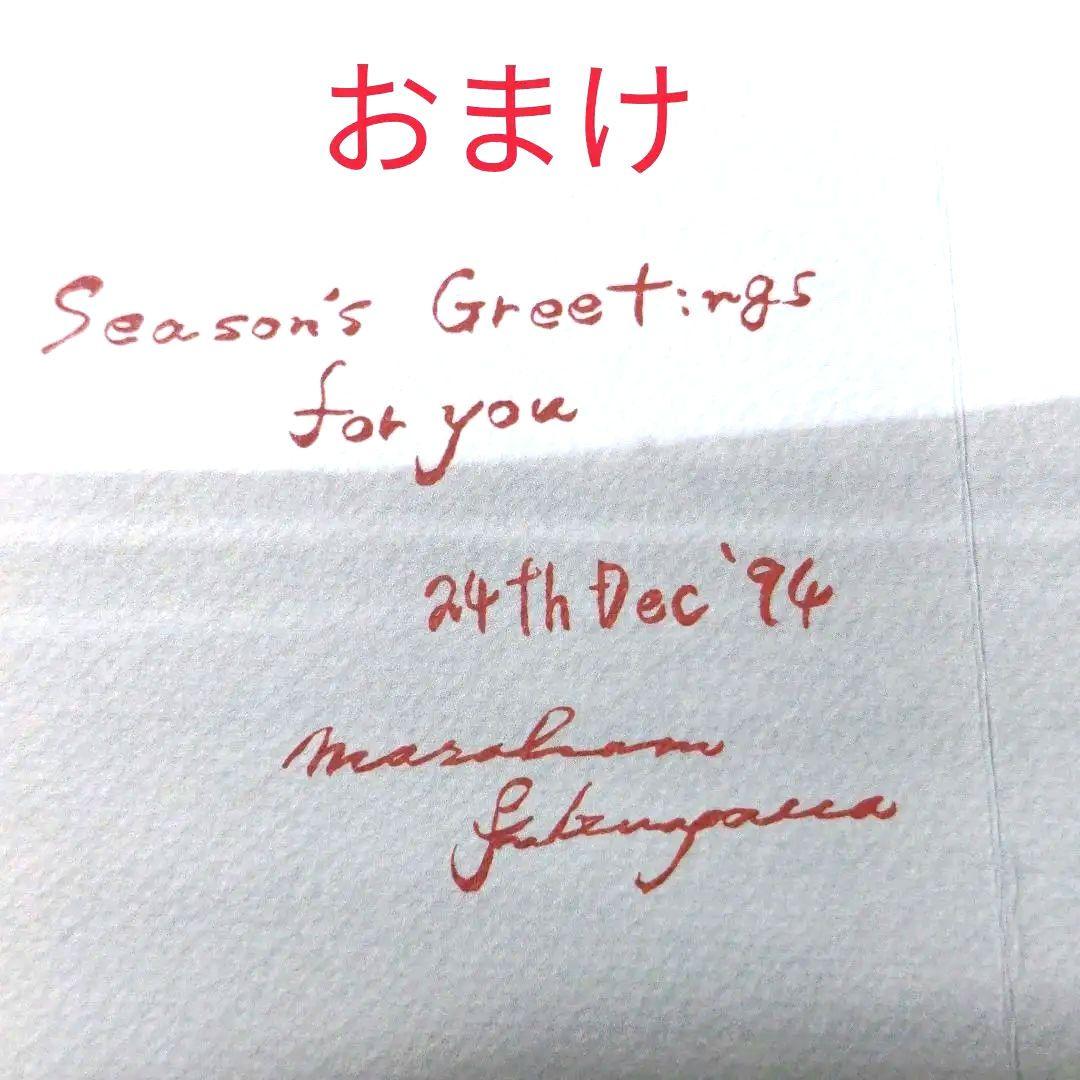 おまけ
Season's Greetings
for you
24th Dec '94